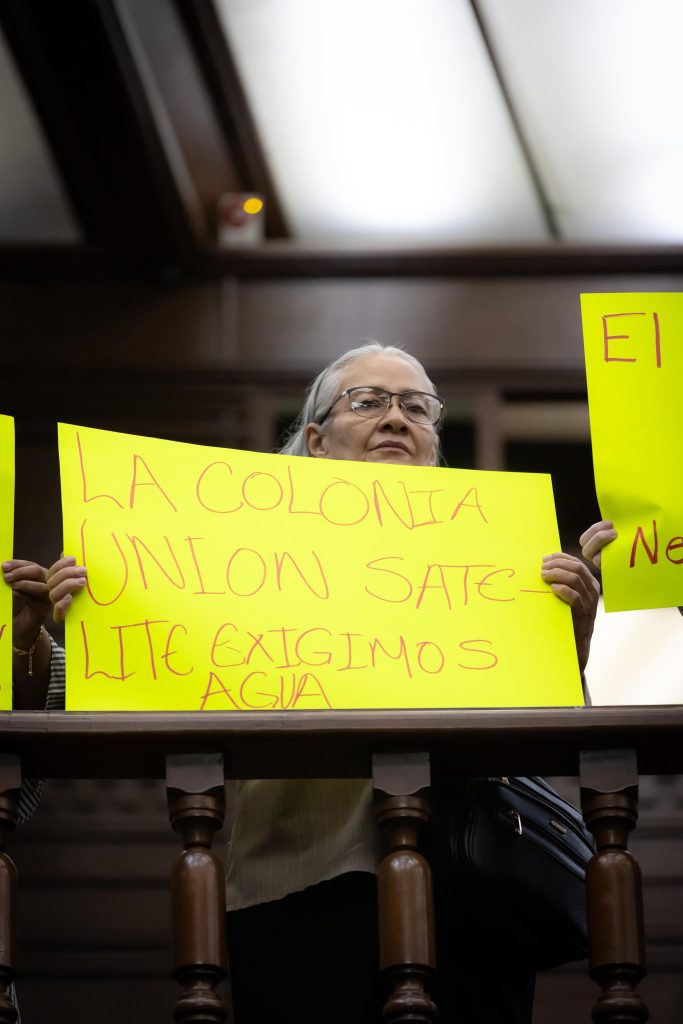 LA COLONIA
UNION SATE-
LITE EXIGIMOS
AGUA
El
Ne